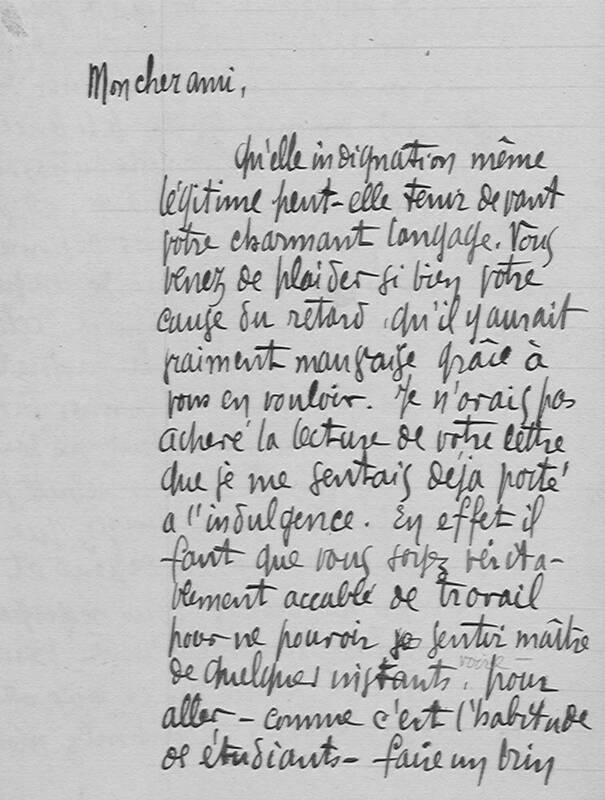 Mon cher ami,
Qu'elle indignation même
légitime peut-elle tenir devant
votre charmant langage. Vous
venez de plaider si bien votre
cause du retard, qu'il y aurait
vraiment mauvaise grâce à
vous en vouloir. Je n'avais pas
achevé la lecture de votre lettre
que je me sentais déjà porté
a l'indulgence. En effet il
faut que vous soyez vérita-
blement accablé de travail
pour ne pouvoir se sentir maître
de quelques instants, pour
aller - comme c'est l'habitude
de étudiants - faire un brin